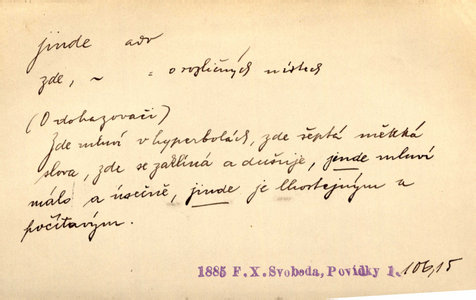 jinde adv
zde, ~ = o rozličných místech
(O dohazovači)
Zde mluví v hyperbolách, zde šeptá měkká
slova, zde se zaklíná a dušuje, jinde mluví
málo a úsečně, jinde je lhostejným a
počítavým.
1885 F.X.Svoboda, Povídky 1. 106,15